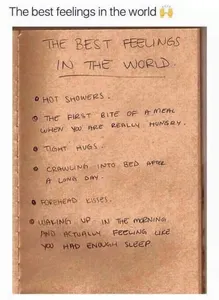 The best feelings in the world 🙌
THE BEST FEELINGS
IN THE WORLD.
HOT SHOWERS.
THE FIRST BITE OF A MEAL
WHEN YOU ARE REALLY HUNGRY.
TIGHT HUGS.
CRAWLING INTO BED AFTER
A LONG DAY.
FOREHEAD KISSES.
WAKING UP IN THE MORNING
AND ACTUALLY FEELING LIKE
YOU HAD ENOUGH SLEEP